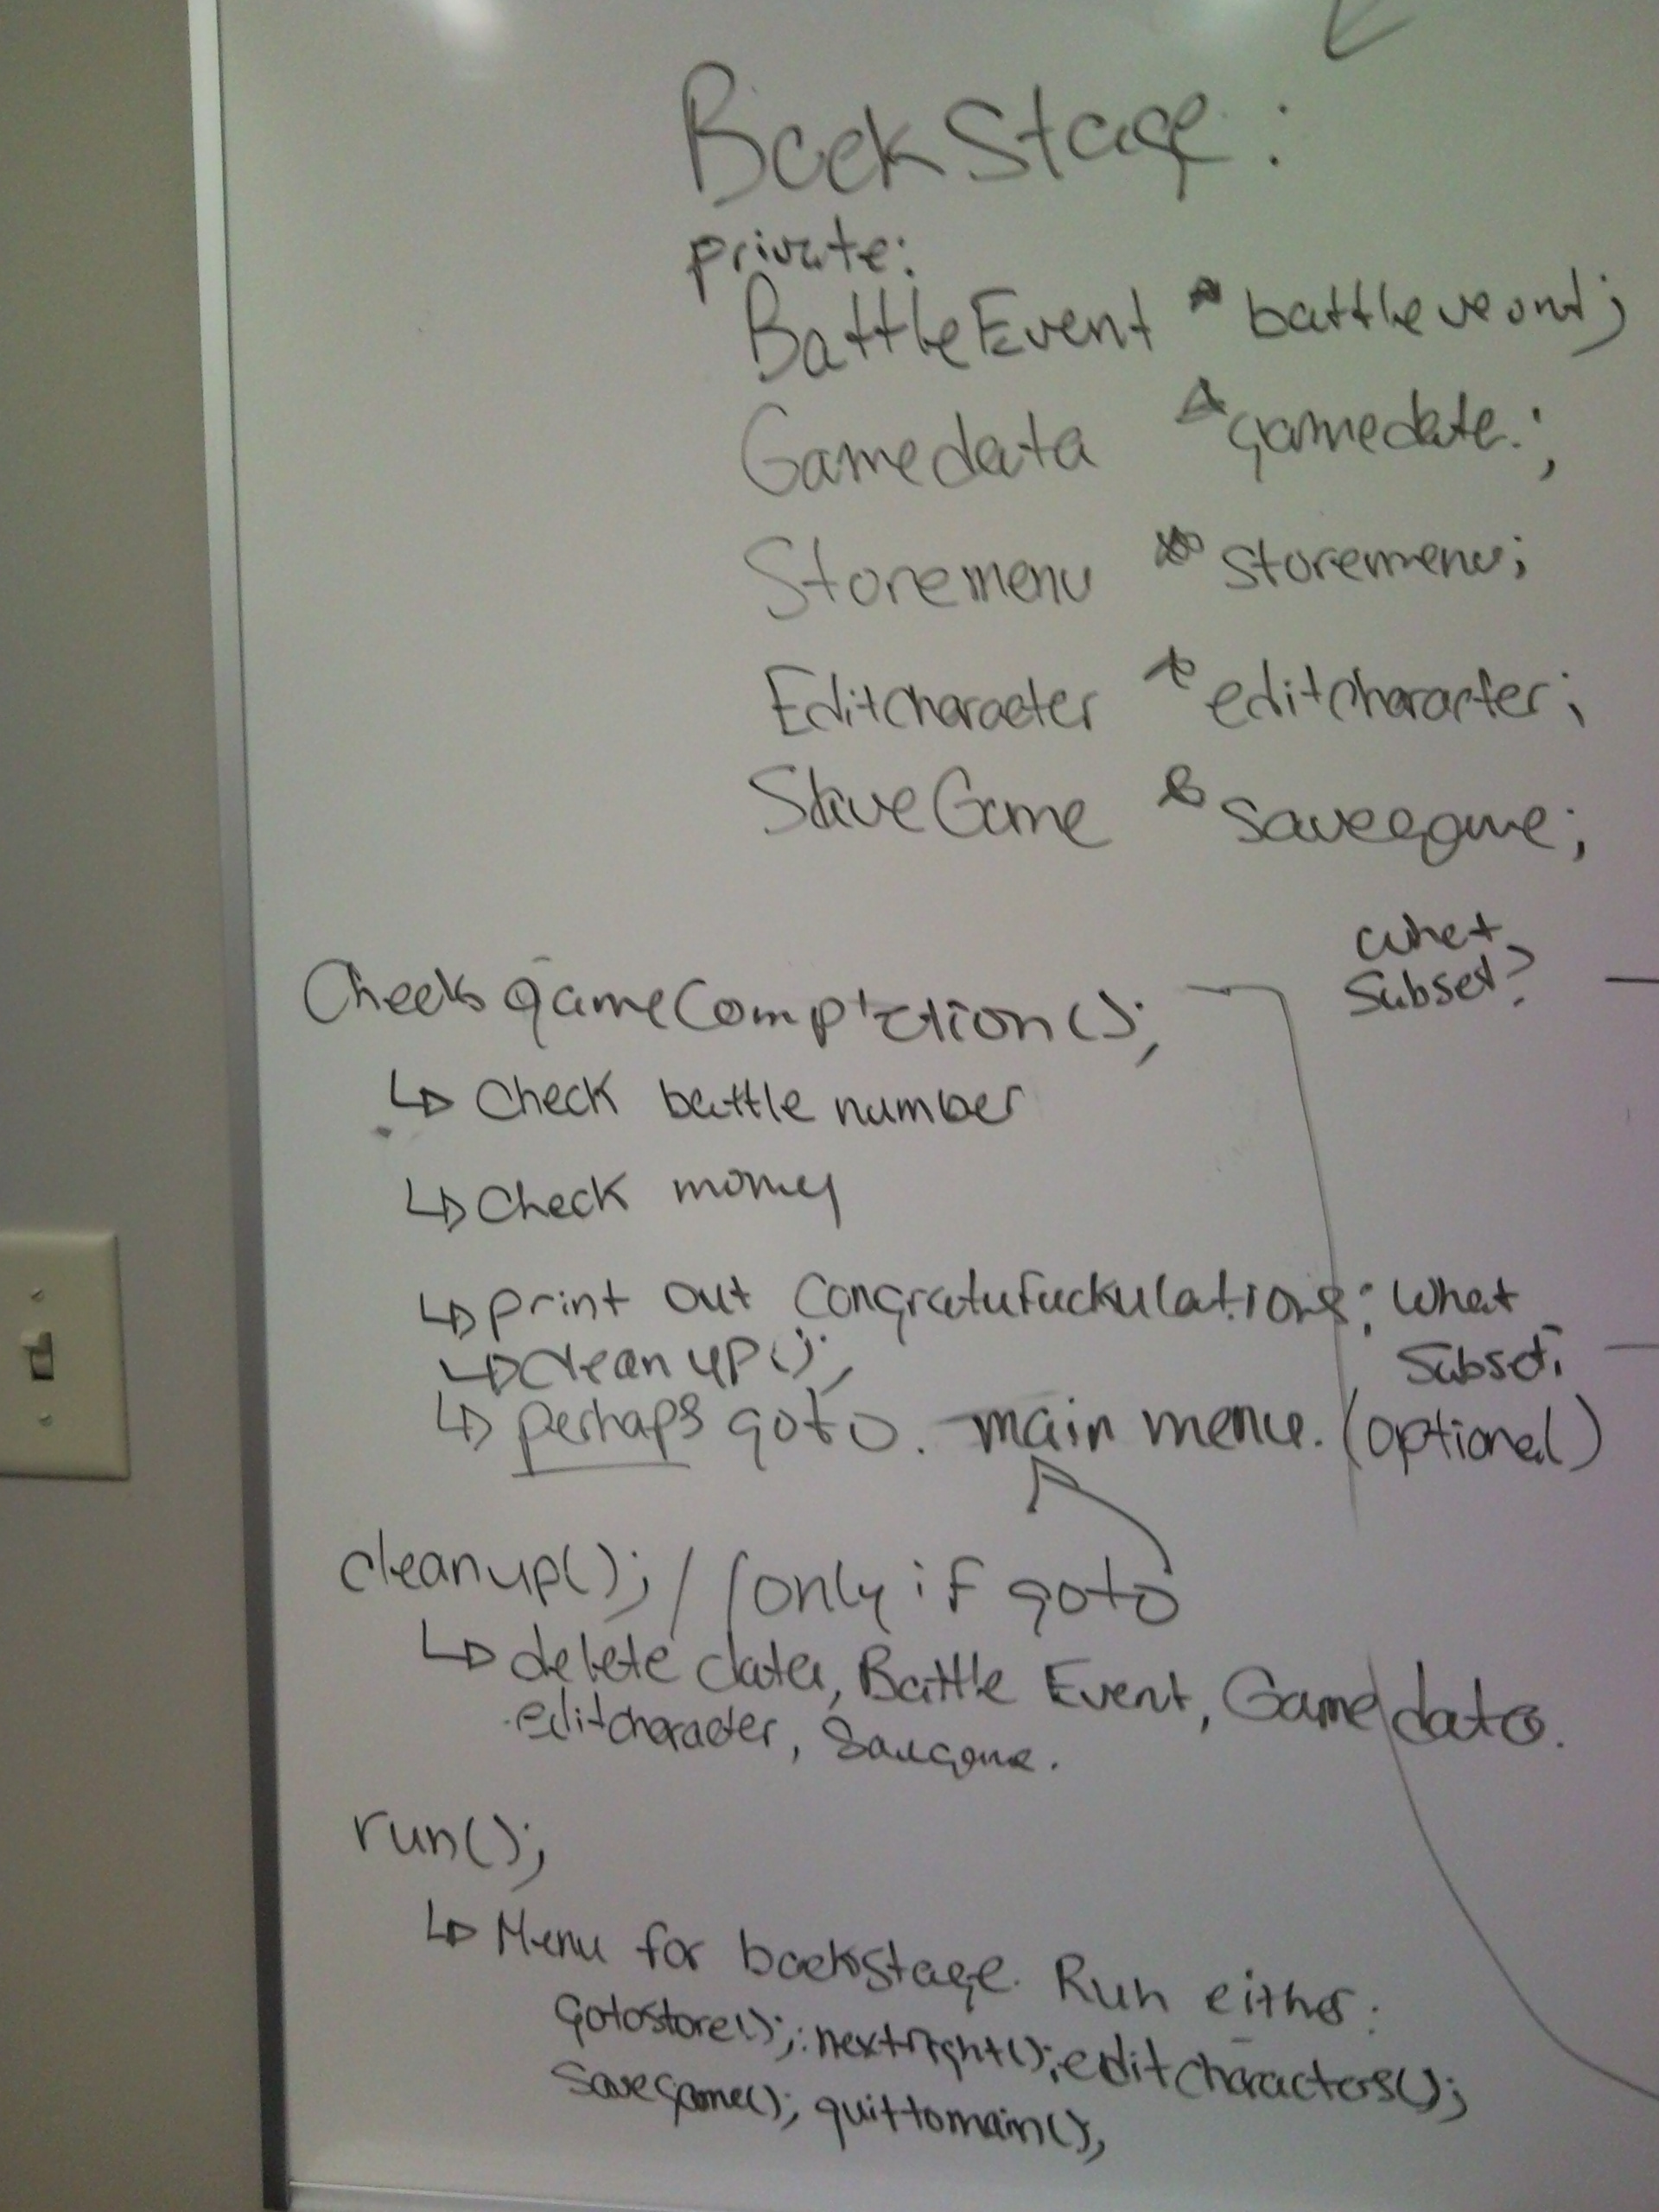 BackStage:
private:
BattleEvent * battleveont;
Gamedata * gamedata;
Storemenu * storemenu;
Editcharacter * editcharacter;
SaveGame * savegame;
what
Subset?
ChecksgameCompletion();
↳ Check battle number
↳ Check money
↳ print out Congratufuckulations; What
Subset;
↳ clean up();
↳ perhaps goto. main menu. (optional)
cleanup(); / (only if goto
↳ delete data, Battle Event, Gamedata.
editcharacter, Savegame.
run();
↳ Menu for backstage. Run either:
gotostore(); nextfight(); editcharacters();
Savegame(); quittomain();